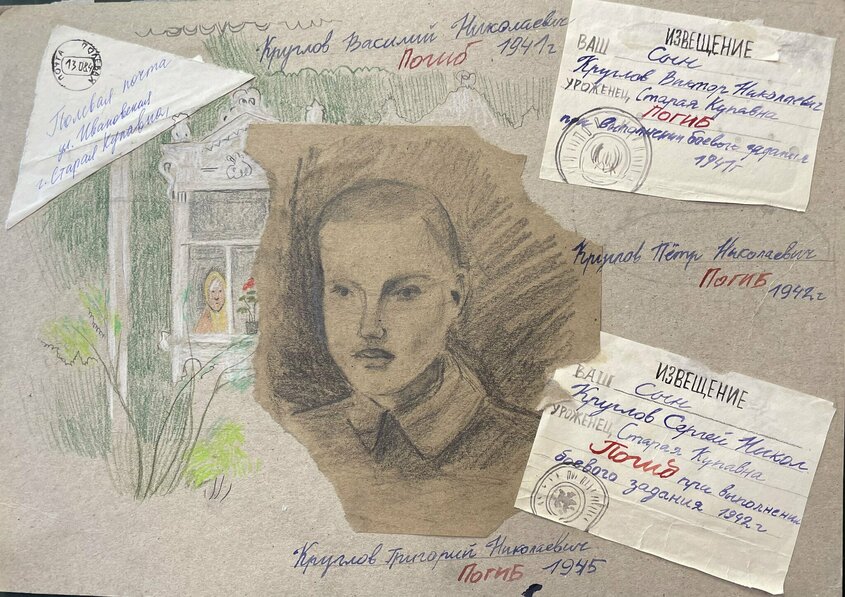 Круглов Василий Николаевич
Погиб 1941г
ПОЧТА ПОЛЕВАЯ
13.08.4
Полевая почта
ул. Ивановская
г. Старая Купавна
ИЗВЕЩЕНИЕ
ВАШ Сын
Круглов Виктор Николаевич
УРОЖЕНЕЦ Старая Купавна
ПОГИБ
при выполнении боевого задания
1941г
Круглов Пётр Николаевич
Погиб
1942г
ИЗВЕЩЕНИЕ
ВАШ Сын
Круглов Сергей Никол
УРОЖЕНЕЦ Старая Купавна
Погиб при выполнении
боевого задания 1942г
Круглов Григорий Николаевич
Погиб 1945